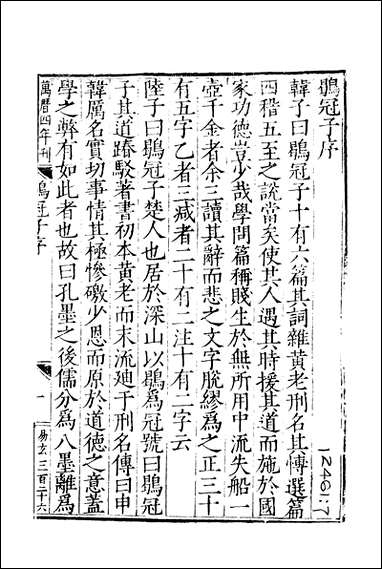 鶡冠子序
韓子曰鶡冠子十有六篇其詞雜黃老刑名其博選篇
四稽五至之說當矣使其人遇其時援其道而施於國
家功德豈少哉學問篇稱賤生於無所用中流失船一
壺千金者余三讀其辭而悲之文字脫繆爲之正三十
有五字乙者三滅者二十有二注十有二字云
陸子曰鶡冠子楚人也居於深山以鶡爲冠號曰鶡冠
子其道踳駁著書初本黃老而末流迪于刑名傳曰申
韓厲名實切事情其極慘礉少恩而原於道德之意蓋
學之弊有如此者也故曰孔墨之後儒分爲八墨離爲
萬曆四年刊 鶡冠子序 一 易玄三百二十六
12461:7